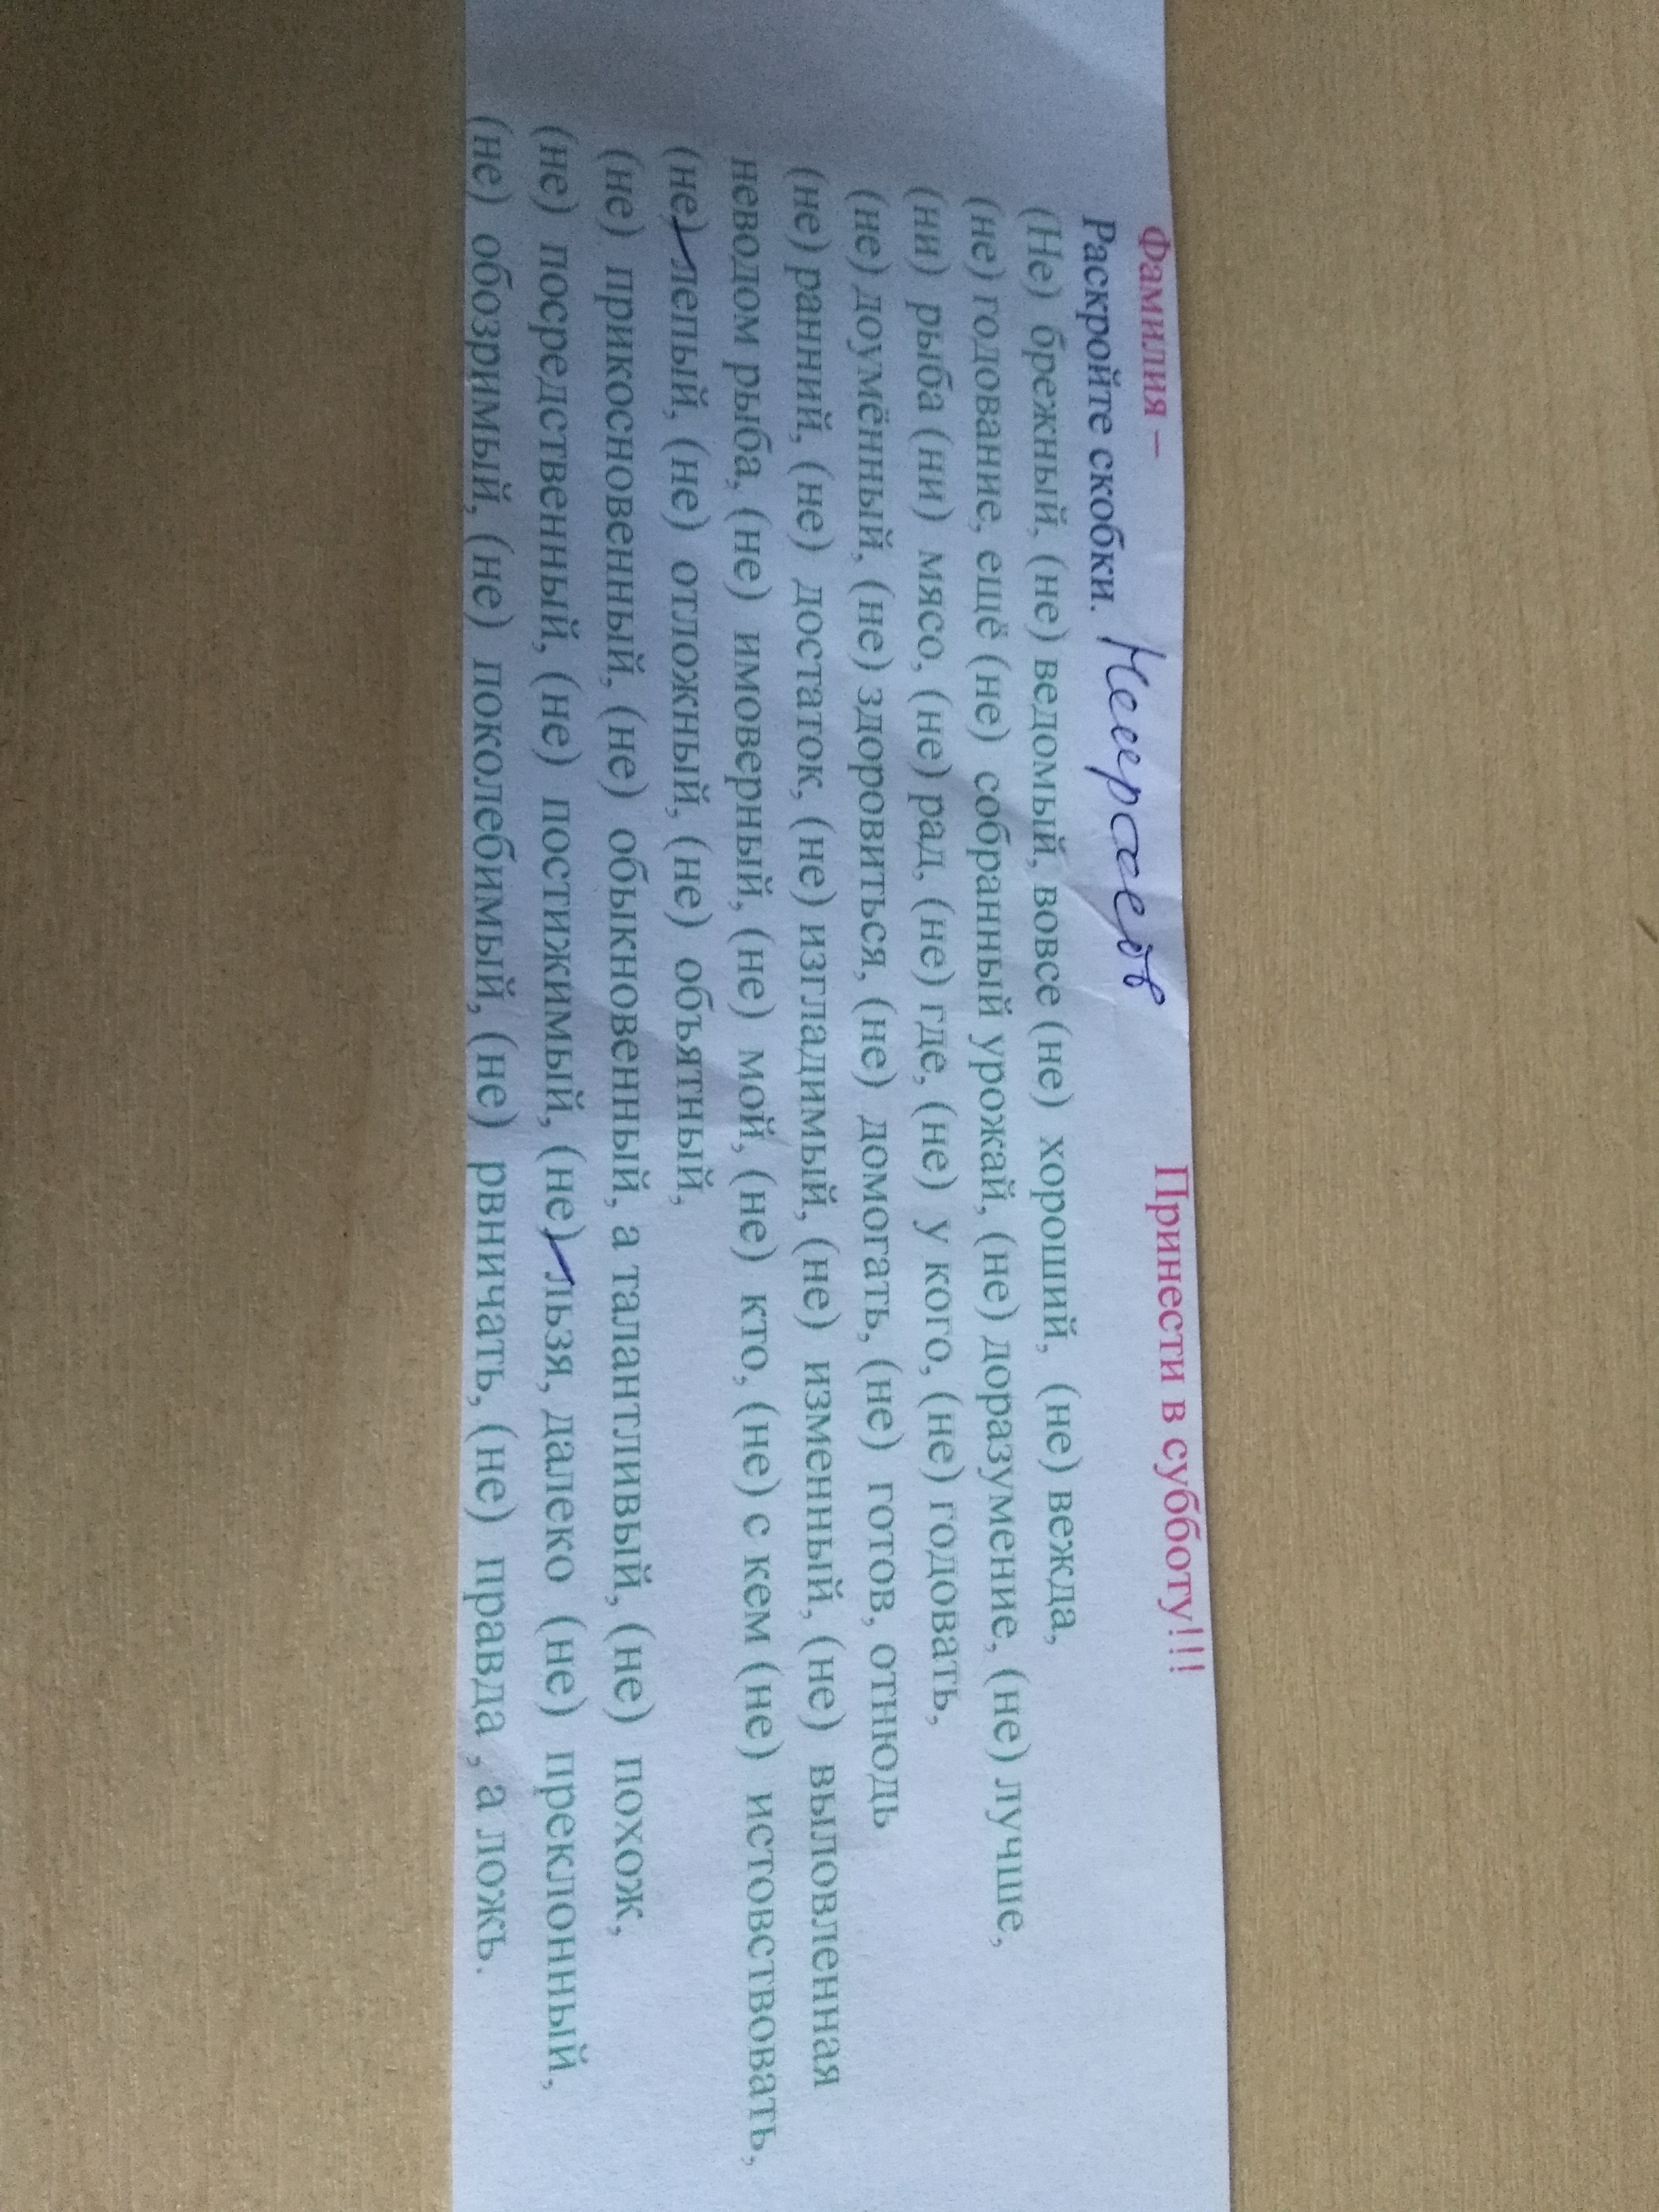 Фамилия – Принести в субботу!!!
Раскройте скобки.
(Не) брежный, (не) ведомый, вовсе (не) хороший, (не) вежда,
(не) годование, ещё (не) собранный урожай, (не) доразумение, (не) лучше,
(ни) рыба (ни) мясо, (не) рад, (не) где, (не) у кого, (не) годовать,
(не) доумённый, (не) здоровиться, (не) домогать, (не) готов, отнюдь
(не) ранний, (не) достаток, (не) изгладимый, (не) изменный, (не) выловленная
неводом рыба, (не) имоверный, (не) мой, (не) кто, (не) с кем (не) истовствовать,
(не) лепый, (не) отложный, (не) объятный,
(не) прикосновенный, (не) обыкновенный, а талантливый, (не) похож,
(не) посредственный, (не) постижимый, (не) льзя, далеко (не) преклонный,
(не) обозримый, (не) поколебимый, (не) рвничать, (не) правда , а ложь.